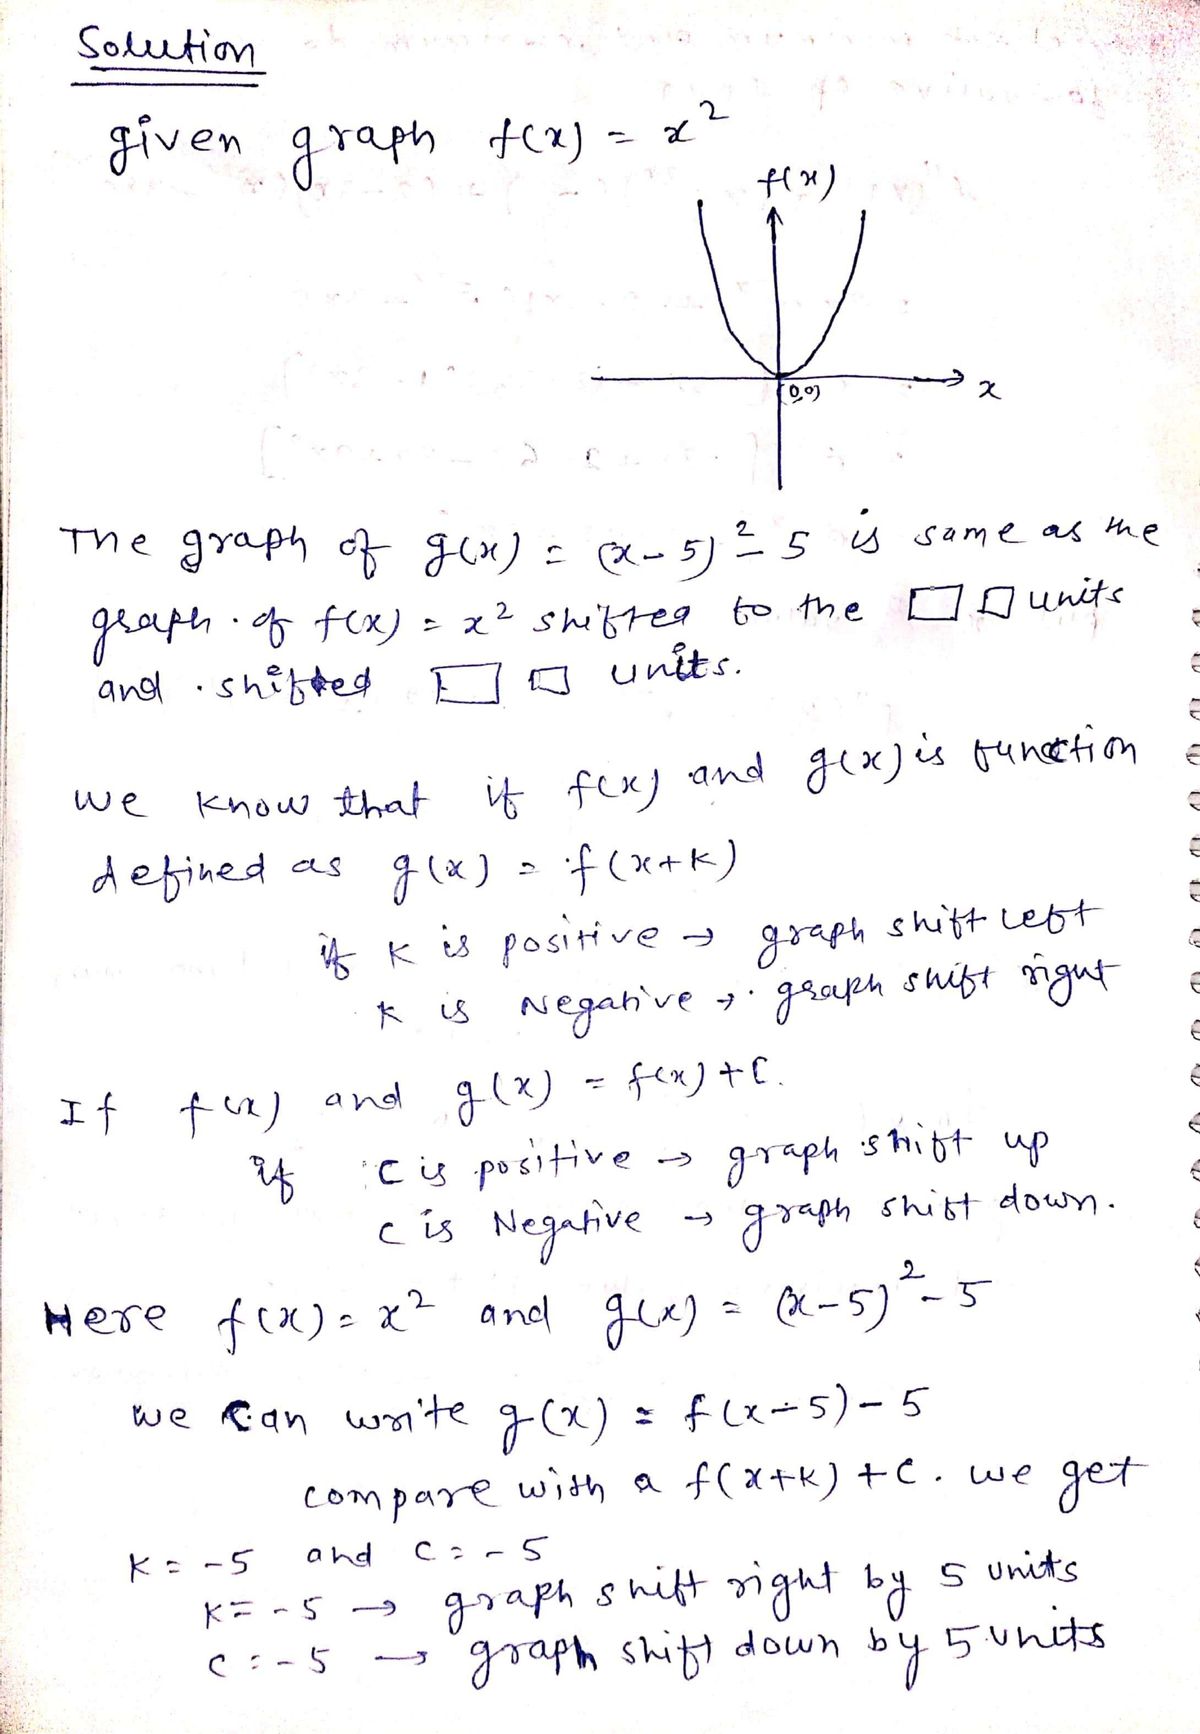 Solution
given graph f(x) = x²
f(x)
(0,0)
x
The graph of g(x) = (x-5)² - 5 is same as the
graph of f(x) = x² shifted to the □ □ units
and shifted □ □ units.
we know that if f(x) and g(x) is function
defined as g(x) = f(x+k)
if K is positive → graph shift left
K is Negative → graph shift right
If f(x) and g(x) = f(x) + C.
if C is positive → graph shift up
C is Negative → graph shift down.
Here f(x) = x² and g(x) = (x-5)² - 5
we can write g(x) = f(x-5) - 5
compare with a f(x+k) + C. we get
K = -5 and C = -5
K = -5 → graph shift right by 5 units
C = -5 → graph shift down by 5 units